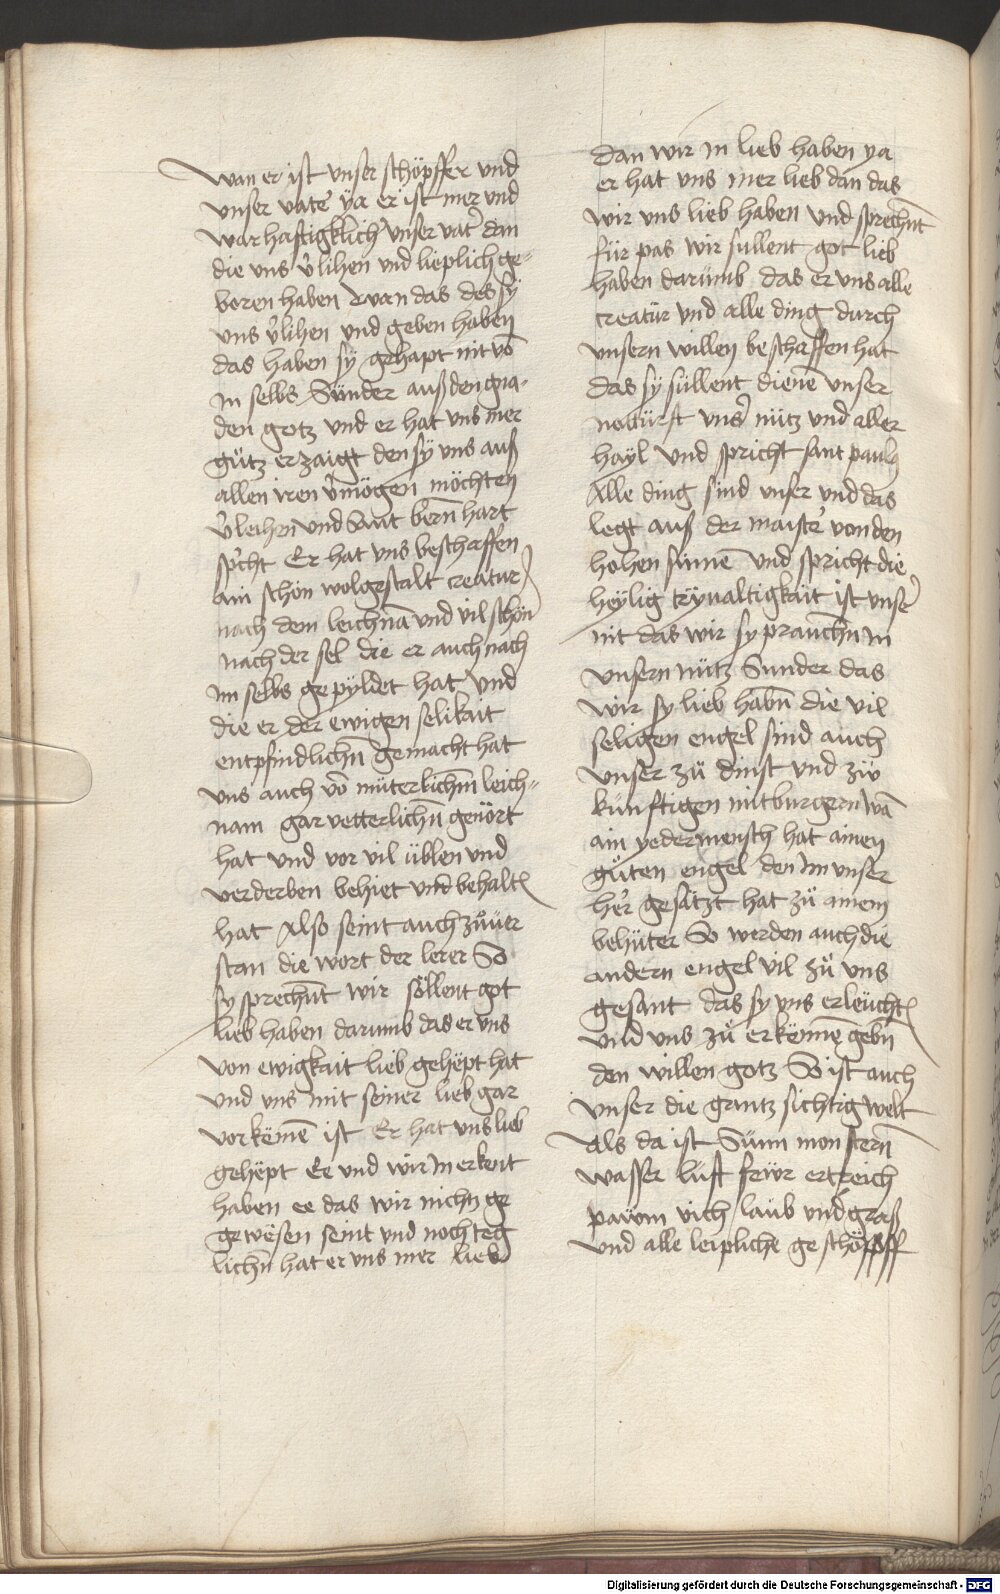 Wan er ist vnser schöpffer vnd
vnser vate᷑ ÿa er ist mer vnd
warhaftigklich vnser vat᷑ dan
die vns v᷑lihen vnd lieplich ge⸗
boren haben wan das des sÿ
vns v᷑lihen vnd geben haben
das haben sÿ gehapt nit vō
in selbs Sünder auß den gna⸗
den gotz vnd er hat vns mer
gütz erzaigt den sÿ vns auß
allen iren v᷑mögen möchten
v᷑leihen vnd Sant bernhart
sp᷑cht Er hat vns beschaffen
ain schön wolgestalt creatur
nach dem leichnā vnd vil schön
nach der sel die er auch nach
im selbs gepÿldet hat vnd
die er der ewigen selikait
entpfindlichn̄ gemacht hat
vns auch vō müterlichm̄ leich⸗
nam gar vetterlichn̄ genört
hat vnd vor vil üblen vnd
verderben behiet vnd behaltē
hat Also seint auch zůuer
stan die wort der lerer So
sy sprechn̄t wir söllent got
lieb haben darumb das er vns
von ewigkait lieb gehëpt hat
vnd vns mit seiner lieb gar
vorkëmē ist Er hat vns lieb
gehëpt Ee vnd wir in erkent
haben ee das wir nichn ge
gewësen seint vnd noch teg
lichn̄ hat er vns mer lieb
dan wir in lieb haben ya
er hat vns mer lieb dan das
wir vns lieb haben vnd sprechn̄t
für pas wir sullent got lieb
haben darumb das er vns alle
creatür vnd alle ding durch
vnsern willen beschaffen hat
das sÿ süllent dienē vnser
notturft vns᷑ nütz vnd aller
hayl vnd spricht sant pauls
Alle ding sind vnser vnd das
legt auß der maiste᷑ von den
hohen sinnē vnd spricht die
heÿlig tryualtigkait ist vnse᷑
nit das wir sy prauchn̄ in
vnsern nütz Sunder das
wir sy lieb habn̄ die vil
seligen engel sind auch
vnser zü dinst vnd zü
künftigen mitburgern wā
ain yeder mensch hat ainen
gůten engel den im vnser
he᷑r gesätzt hat zů ainem
behüter So werden auch die
andern engel vil zů vns
gesant das sy vns erleuchtē
vnd vns zů erkënnē gebn̄
den willen gotz So ist auch
vnser die gantz sichtig welt
Als da ist Sünn mon stern
wasser lüft feẅr ertreich
paẅm vich laub vnd graß
vnd alle leipliche geschöpff
Digitalisierung gefördert durch die Deutsche Forschungsgemeinschaft - DFG